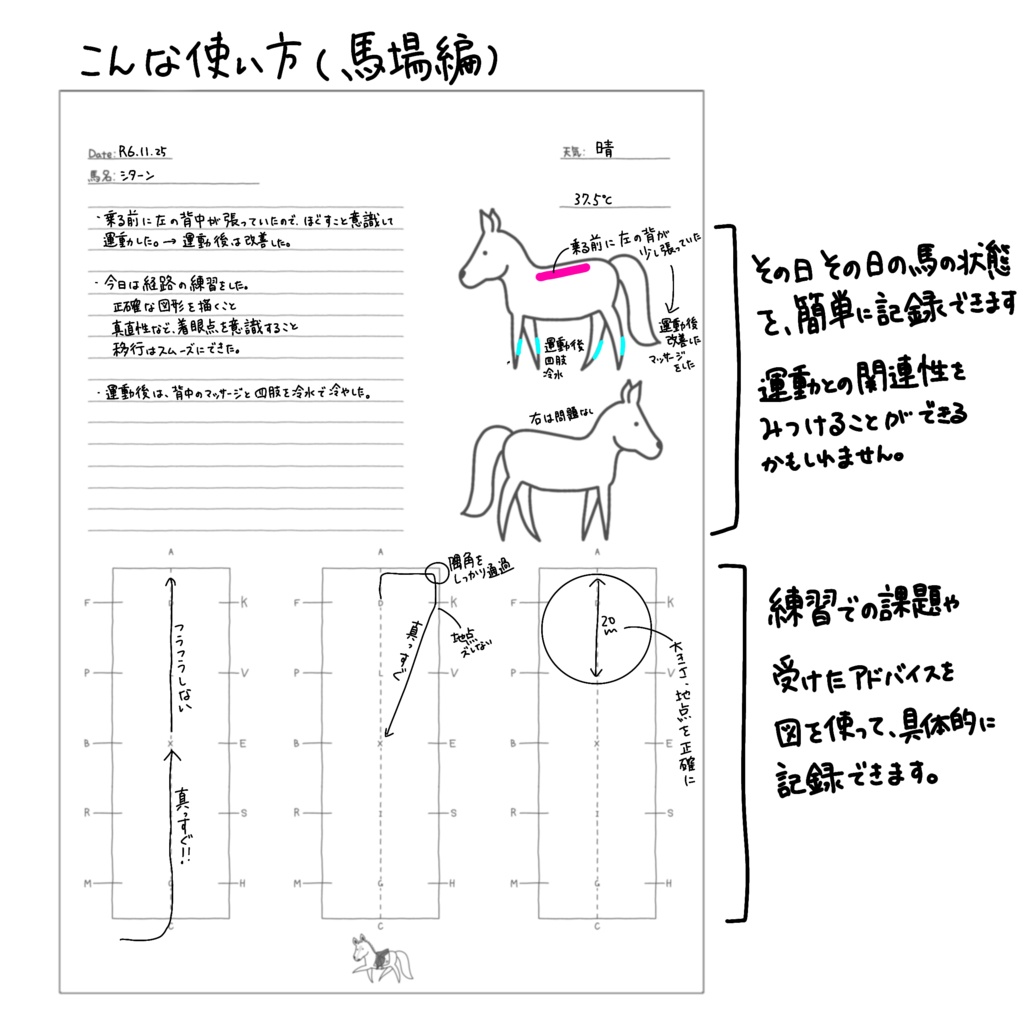 こんな使い方(馬場編)
Date: R6.11.25
天気: 晴
馬名: シターン
37.5℃
・乗る前に左の背中が張っていたので、ほぐすこと意識して
運動した。→ 運動後は改善した。
・今日は経路の練習をした。
正確な図形を描くこと
真直性など、着眼点を意識すること
移行はスムーズにできた。
・運動後は、背中のマッサージと四肢を冷水で冷やした。
乗る前に左の背が
少し張っていた
運動後
四肢
冷水
運動後
改善した
マッサージ
をした
右は問題なし
その日その日の馬の状態
を、簡単に記録できます
運動との関連性を
みつけることができる
かもしれません。
A
F
D
K
P
V
B
X
E
R
S
M
G
H
C
フラフラしない
真っすぐ!!
A
F
D
K
P
L
V
B
X
E
R
I
S
M
G
H
C
隅角を
しっかり通過
地点
ズレない
真っすぐ
A
F
D
K
P
V
B
X
E
R
I
S
M
G
H
C
20m
大きさ、地点を正確に
練習での課題や
受けたアドバイスを
図を使って、具体的に
記録できます。